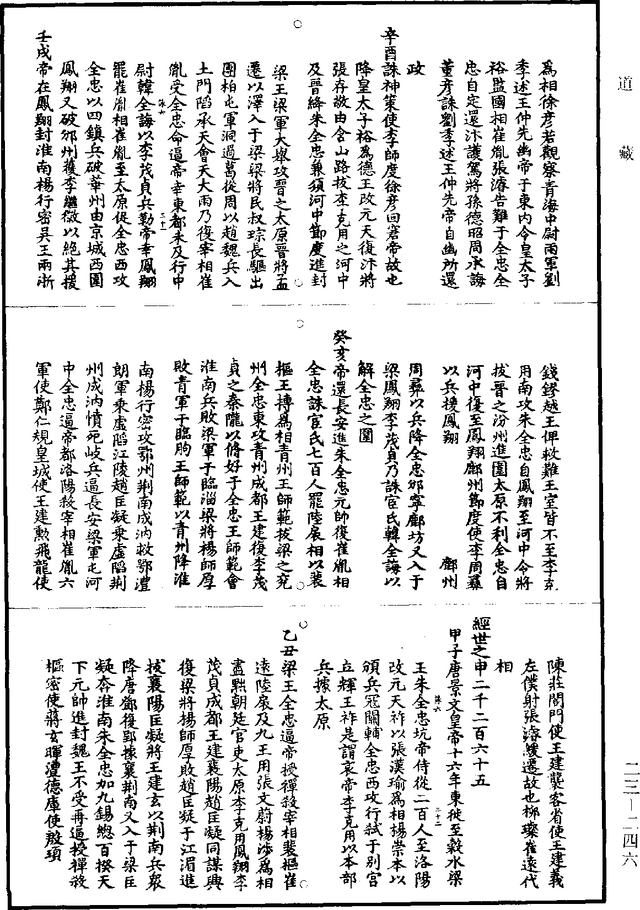 道藏
為相徐彥若觀察青海中尉兩軍劉
季述王仲先幽帝于東內令皇太子
裕監國相崔胤張濬告難于全忠全
忠自定還汴護駕將孫德昭周承誨
董彥誅劉季述王仲先帝自幽所還
政
辛酉誅神策使李師度徐彥回寃帝故也
降皇太子裕為德王改元天復汴將
張存敬由含山路拔李克用之河中
及晉絳朱全忠兼領河中節度進封
梁王梁軍大舉攻晉之太原晉將孟
遷以澤入于梁梁將氏叔琮長驅出
團柏屯軍洞過萬從周以趙魏兵入
土門陷承天會天大雨乃復宰相崔
胤受全忠命逼帝幸東都未及行中
尉韓全誨以李茂貞兵勒帝幸鳳翔
罷崔胤相崔胤至太原促全忠西攻
全忠以四鎮兵破華州由京城西圍
鳳翔又破邠州獲李繼徽以絕其援
壬戌帝在鳳翔封淮南楊行密吳王兩浙
錢鏐越王俾救難王室皆不至李克
用南攻朱全忠自鳳翔至河中令將
拔晉之汾州進圍太原不利全忠自
河中復至鳳翔鄜州節度使李周彞
以兵援鳳翔 鄜州
周彞以兵降全忠邠寧鄜坊又入于
梁鳳翔李茂貞乃誅宦氏韓全誨以
解全忠之圍
癸亥帝還長安進朱全忠元帥復崔胤相
全忠誅宦氏七百人罷陸扆相以裴
樞王摶為相青州王師範拔梁之兗
州全忠東攻青州成都王建復李茂
貞之秦隴以脩好于全忠王師範會
淮南兵敗梁軍于臨淄梁將楊師厚
敗青軍于臨朐王師範以青州降淮
南楊行密攻鄂州荊南成汭救鄂澧
朗軍乘虛陷江陵趙匡凝乘虛陷荊
州成汭憤死岐兵逼長安梁軍屯河
中全忠逼帝都洛陽殺宰相崔胤六
軍使鄭仁規皇城使王建勳飛龍使
陳莊閤門使王建襲客省使王建義
左僕射張濬緩遷故也柳璨崔遠代
相
經世之申二千二百六十五
甲子唐景文皇帝十六年東徙至穀水梁
王朱全忠坑帝侍從二百人至洛陽
改元天祚以張漢瑜為相楊崇本以
頒兵冦關輔全忠西攻行弒于別宮
立輝王祚是謂哀帝李克用以本部
兵據太原
乙丑梁王全忠逼帝授禪殺宰相裴樞崔
遠陸扆及九王用張文蔚楊涉為相
盡黜朝廷官吏太原李克用鳳翔李
茂貞成都王建襄陽趙匡凝同謀興
復梁將楊師厚敗趙匡凝于江湄進
拔襄陽匡凝將王建玄以荊南兵眾
降唐鄧復郢據襄荊南又入于梁匡
凝奔淮南朱全忠加九錫總百揆天
下元帥進封魏王不受再逼授禪殺
樞密使蔣玄暉澧德庫使殷頊
二三—二四六